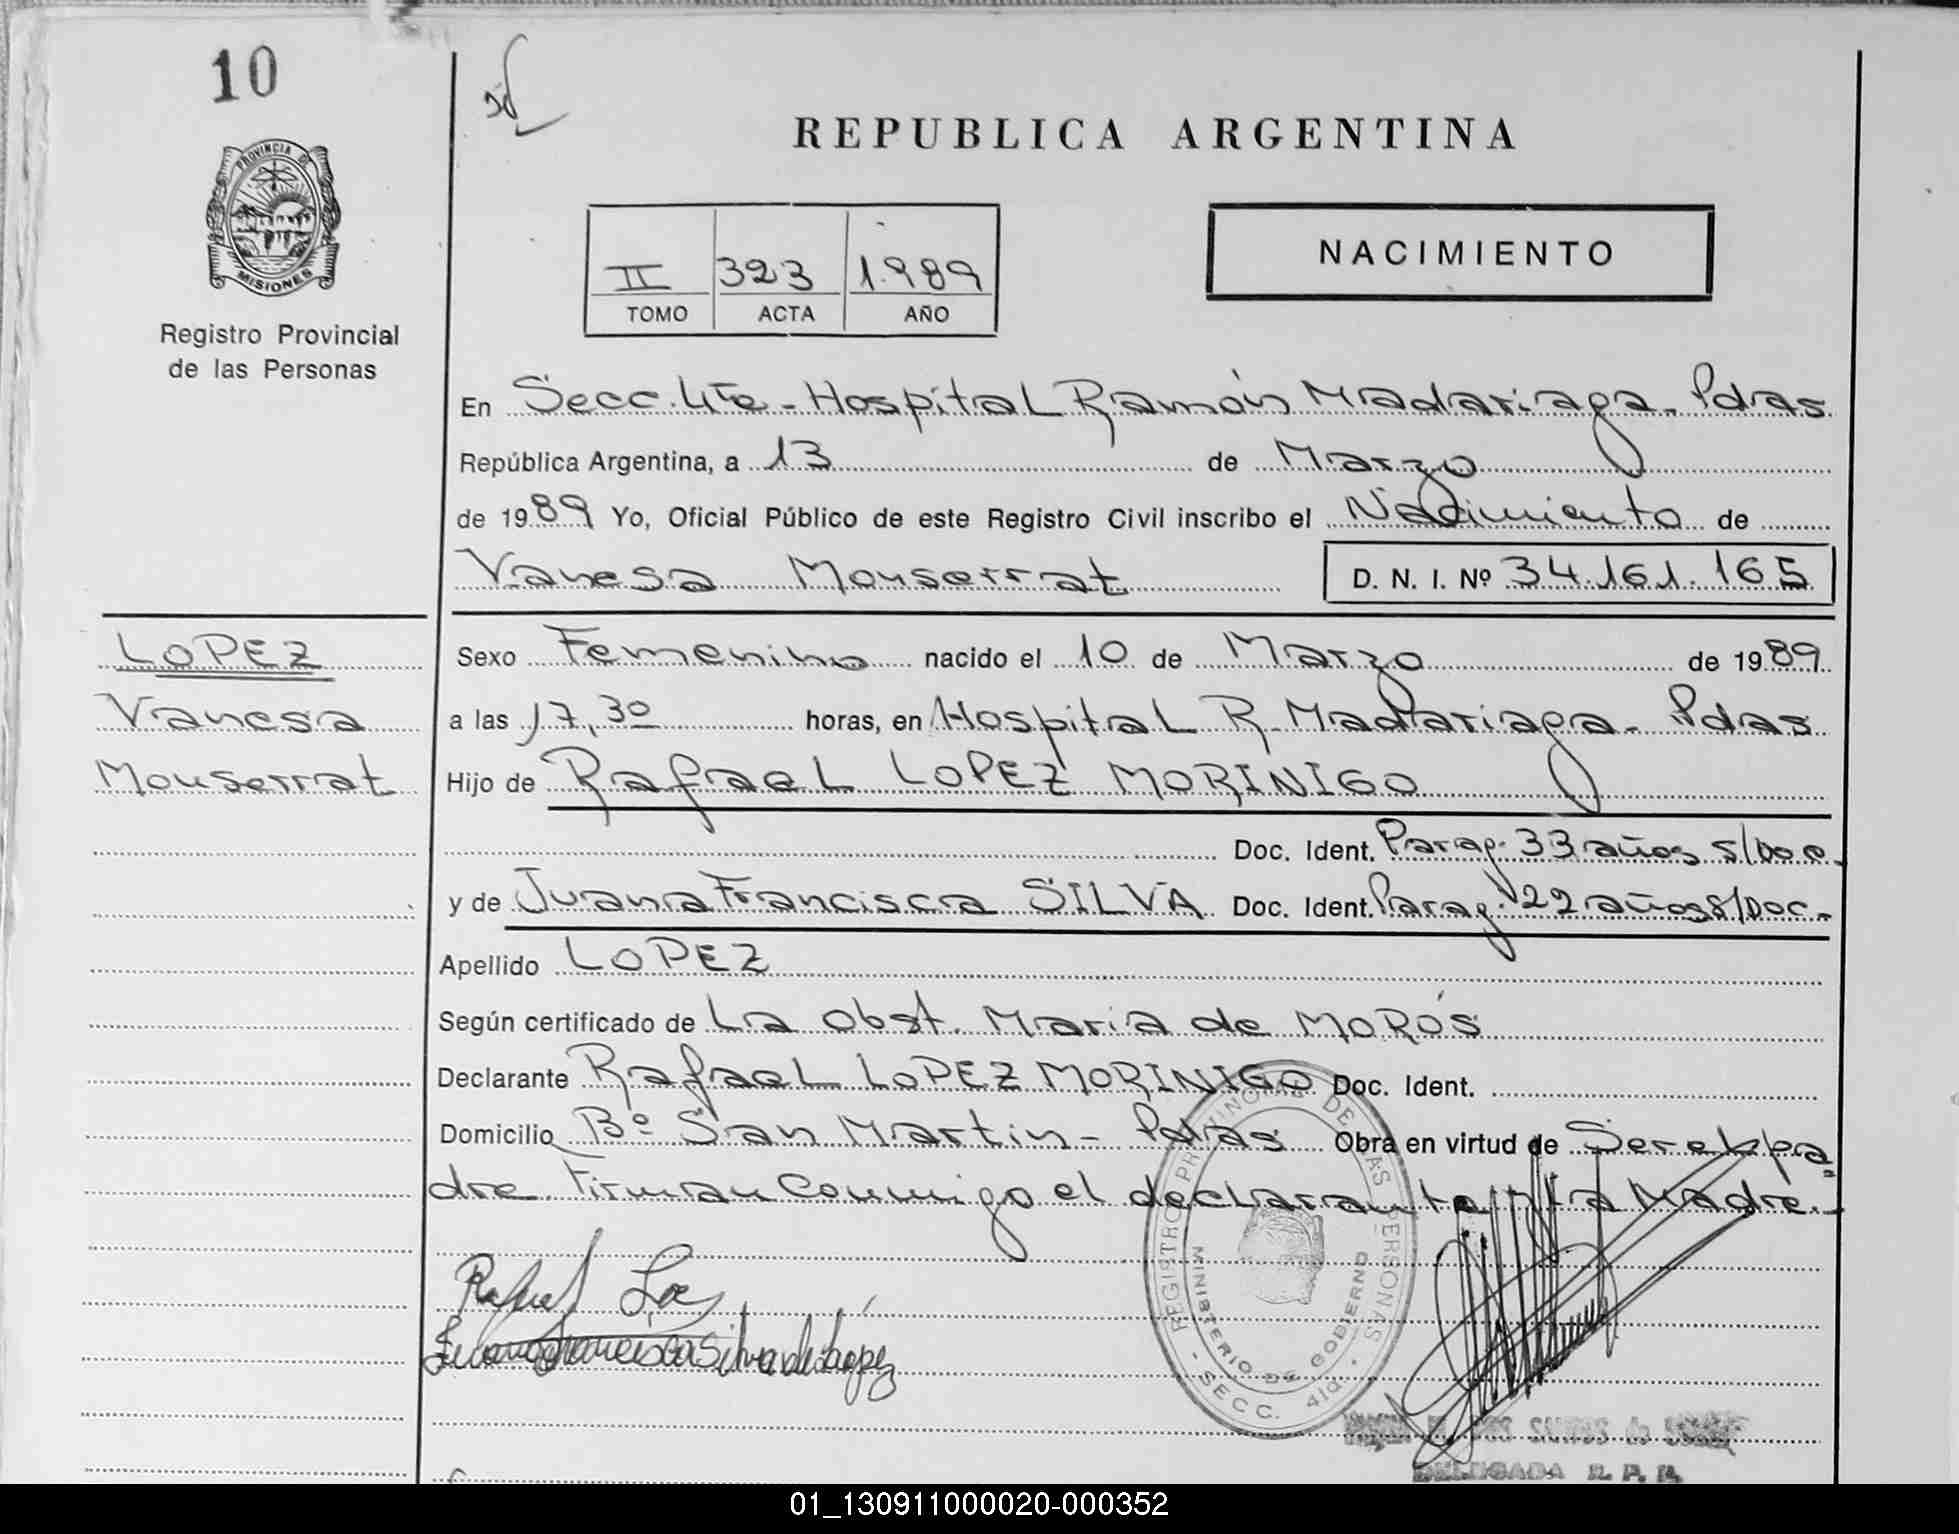 10
PROVINCIA DE
MISIONES
Registro Provincial
de las Personas
REPUBLICA ARGENTINA
II 323 1.989
TOMO ACTA AÑO
NACIMIENTO
En Secc. 4ta - Hospital Ramón Madariaga - Pdas
República Argentina, a 13 de Marzo
de 1989 Yo, Oficial Público de este Registro Civil inscribo el Nacimiento de
Vanesa Monserrat D. N. I. Nº 34.161.165
LOPEZ
Vanesa
Monserrat
Sexo Femenino nacido el 10 de Marzo de 1989
a las 17,30 horas, en Hospital R. Madariaga - Pdas
Hijo de Rafael LOPEZ MORINIGO
Doc. Ident. Parag. 33 años s/Doc.
y de Juana Francisca SILVA Doc. Ident. Parag. 22 años s/Doc.-
Apellido LOPEZ
Según certificado de La Obst. Maria de MORÓS
Declarante Rafael LOPEZ MORINIGO Doc. Ident.
Domicilio Bº San Martin - Pdas Obra en virtud de Ser el pa
dre. Firman Conmigo el declarante y la Madre.-
Rafael
Francisca Silva de López
REGISTRO PROVINCIAL DE LAS PERSONAS
MINISTERIO DE GOBIERNO
- SECC. 4ta. -
DELEGADA R. P. P.
01_130911000020-000352